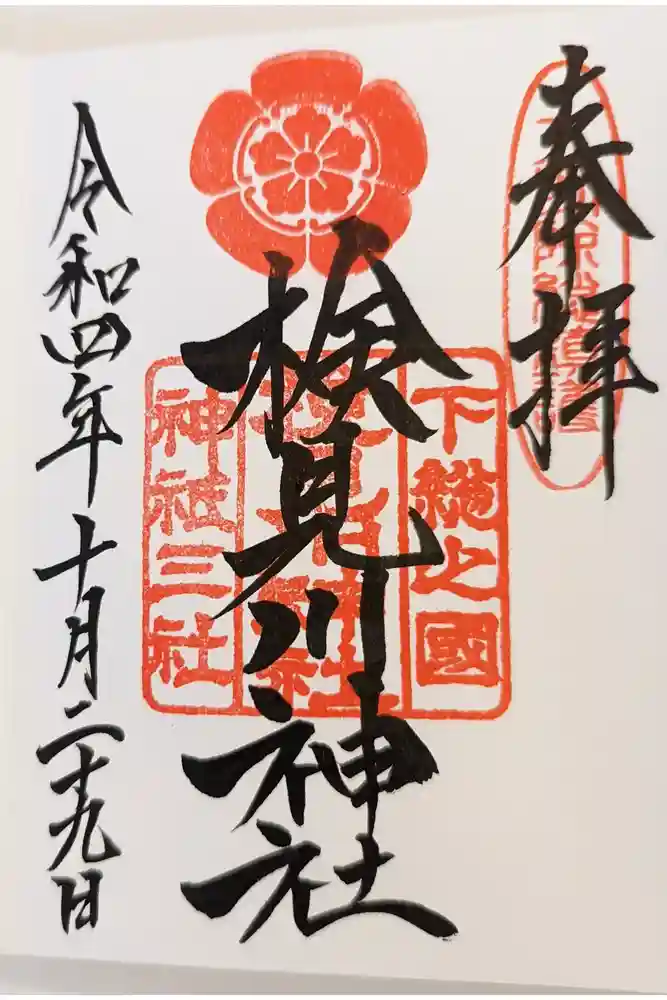 奉拝
下総之國
神社三社
検見川神社
令和四年十月二十九日